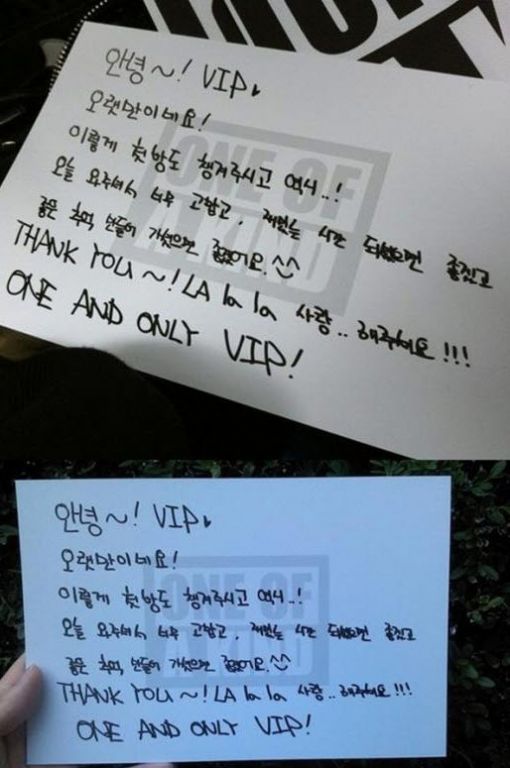 안녕~! VIP♥
오랫만이네요!
이렇게 첫방도 챙겨주시고 역시..!
오늘 와주셔서 너무 고맙고, 재밌는 시간 되셨으면 좋겠고
좋은 추억 만들어 가셨으면 좋겠어요.^^
THANK YOU~! LA la la 사랑.. 해주세요!!!
ONE AND ONLY VIP!
ONE OF
A KIND
안녕~! VIP♥
오랫만이네요!
이렇게 첫방도 챙겨주시고 역시..!
오늘 와주셔서 너무 고맙고, 재밌는 시간 되셨으면 좋겠고
좋은 추억 만들어 가셨으면 좋겠어요.^^
THANK YOU~! LA la la 사랑.. 해주세요!!!
ONE AND ONLY VIP!
ONE OF
A KIND